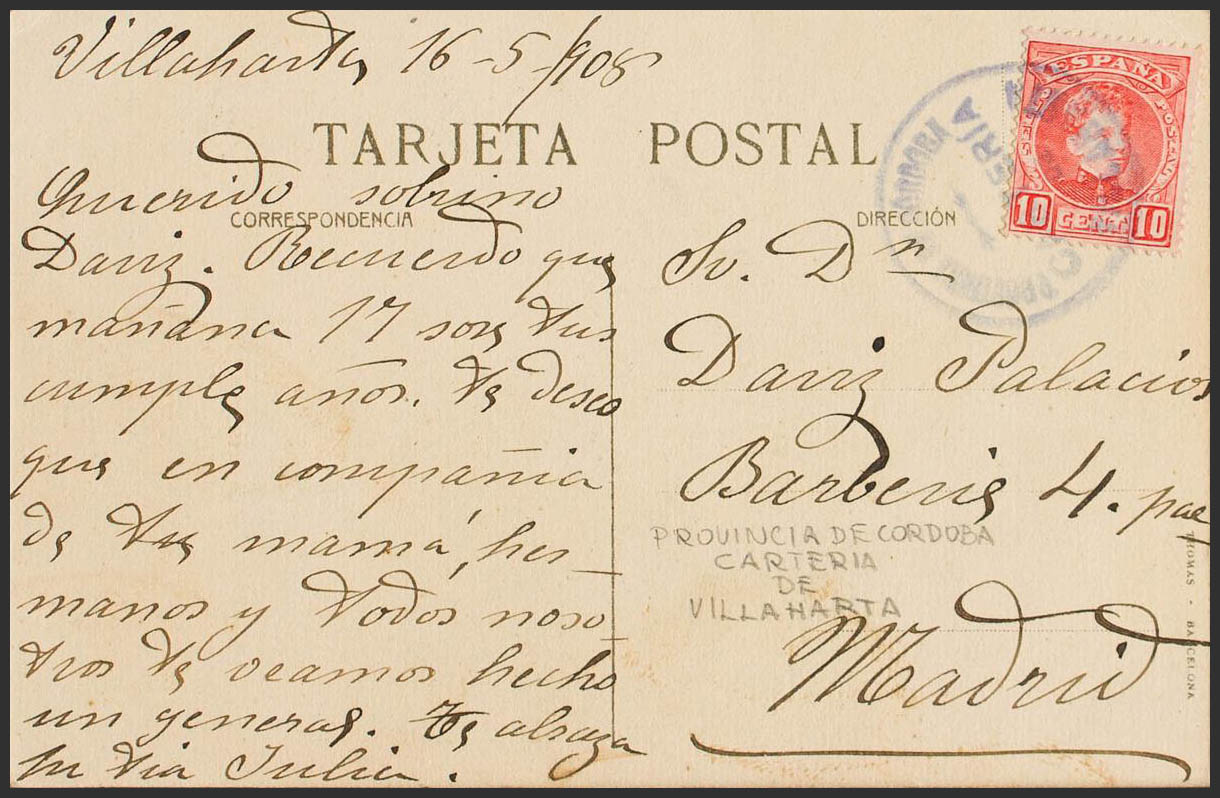 Villaharta 16-5-/908
TARJETA POSTAL
CORRESPONDENCIA
DIRECCIÓN
Querido sobrino
Dariz. Recuerdo que
mañana 17 son tus
cumple años. te deseo
que en compañia
de tu mamá, her-
manos y todos noso-
tros te veamos hecho
un general. Te abraza
tu tia Julia.
Sr. Dn
Dariz Palacios
Barberis 4. pae
Madrid
PROVINCIA DE CORDOBA
CARTERIA
DE
VILLAHARTA
ESPAÑA
10 CENT. 10
CORDOBA
THOMAS - BARCELONA